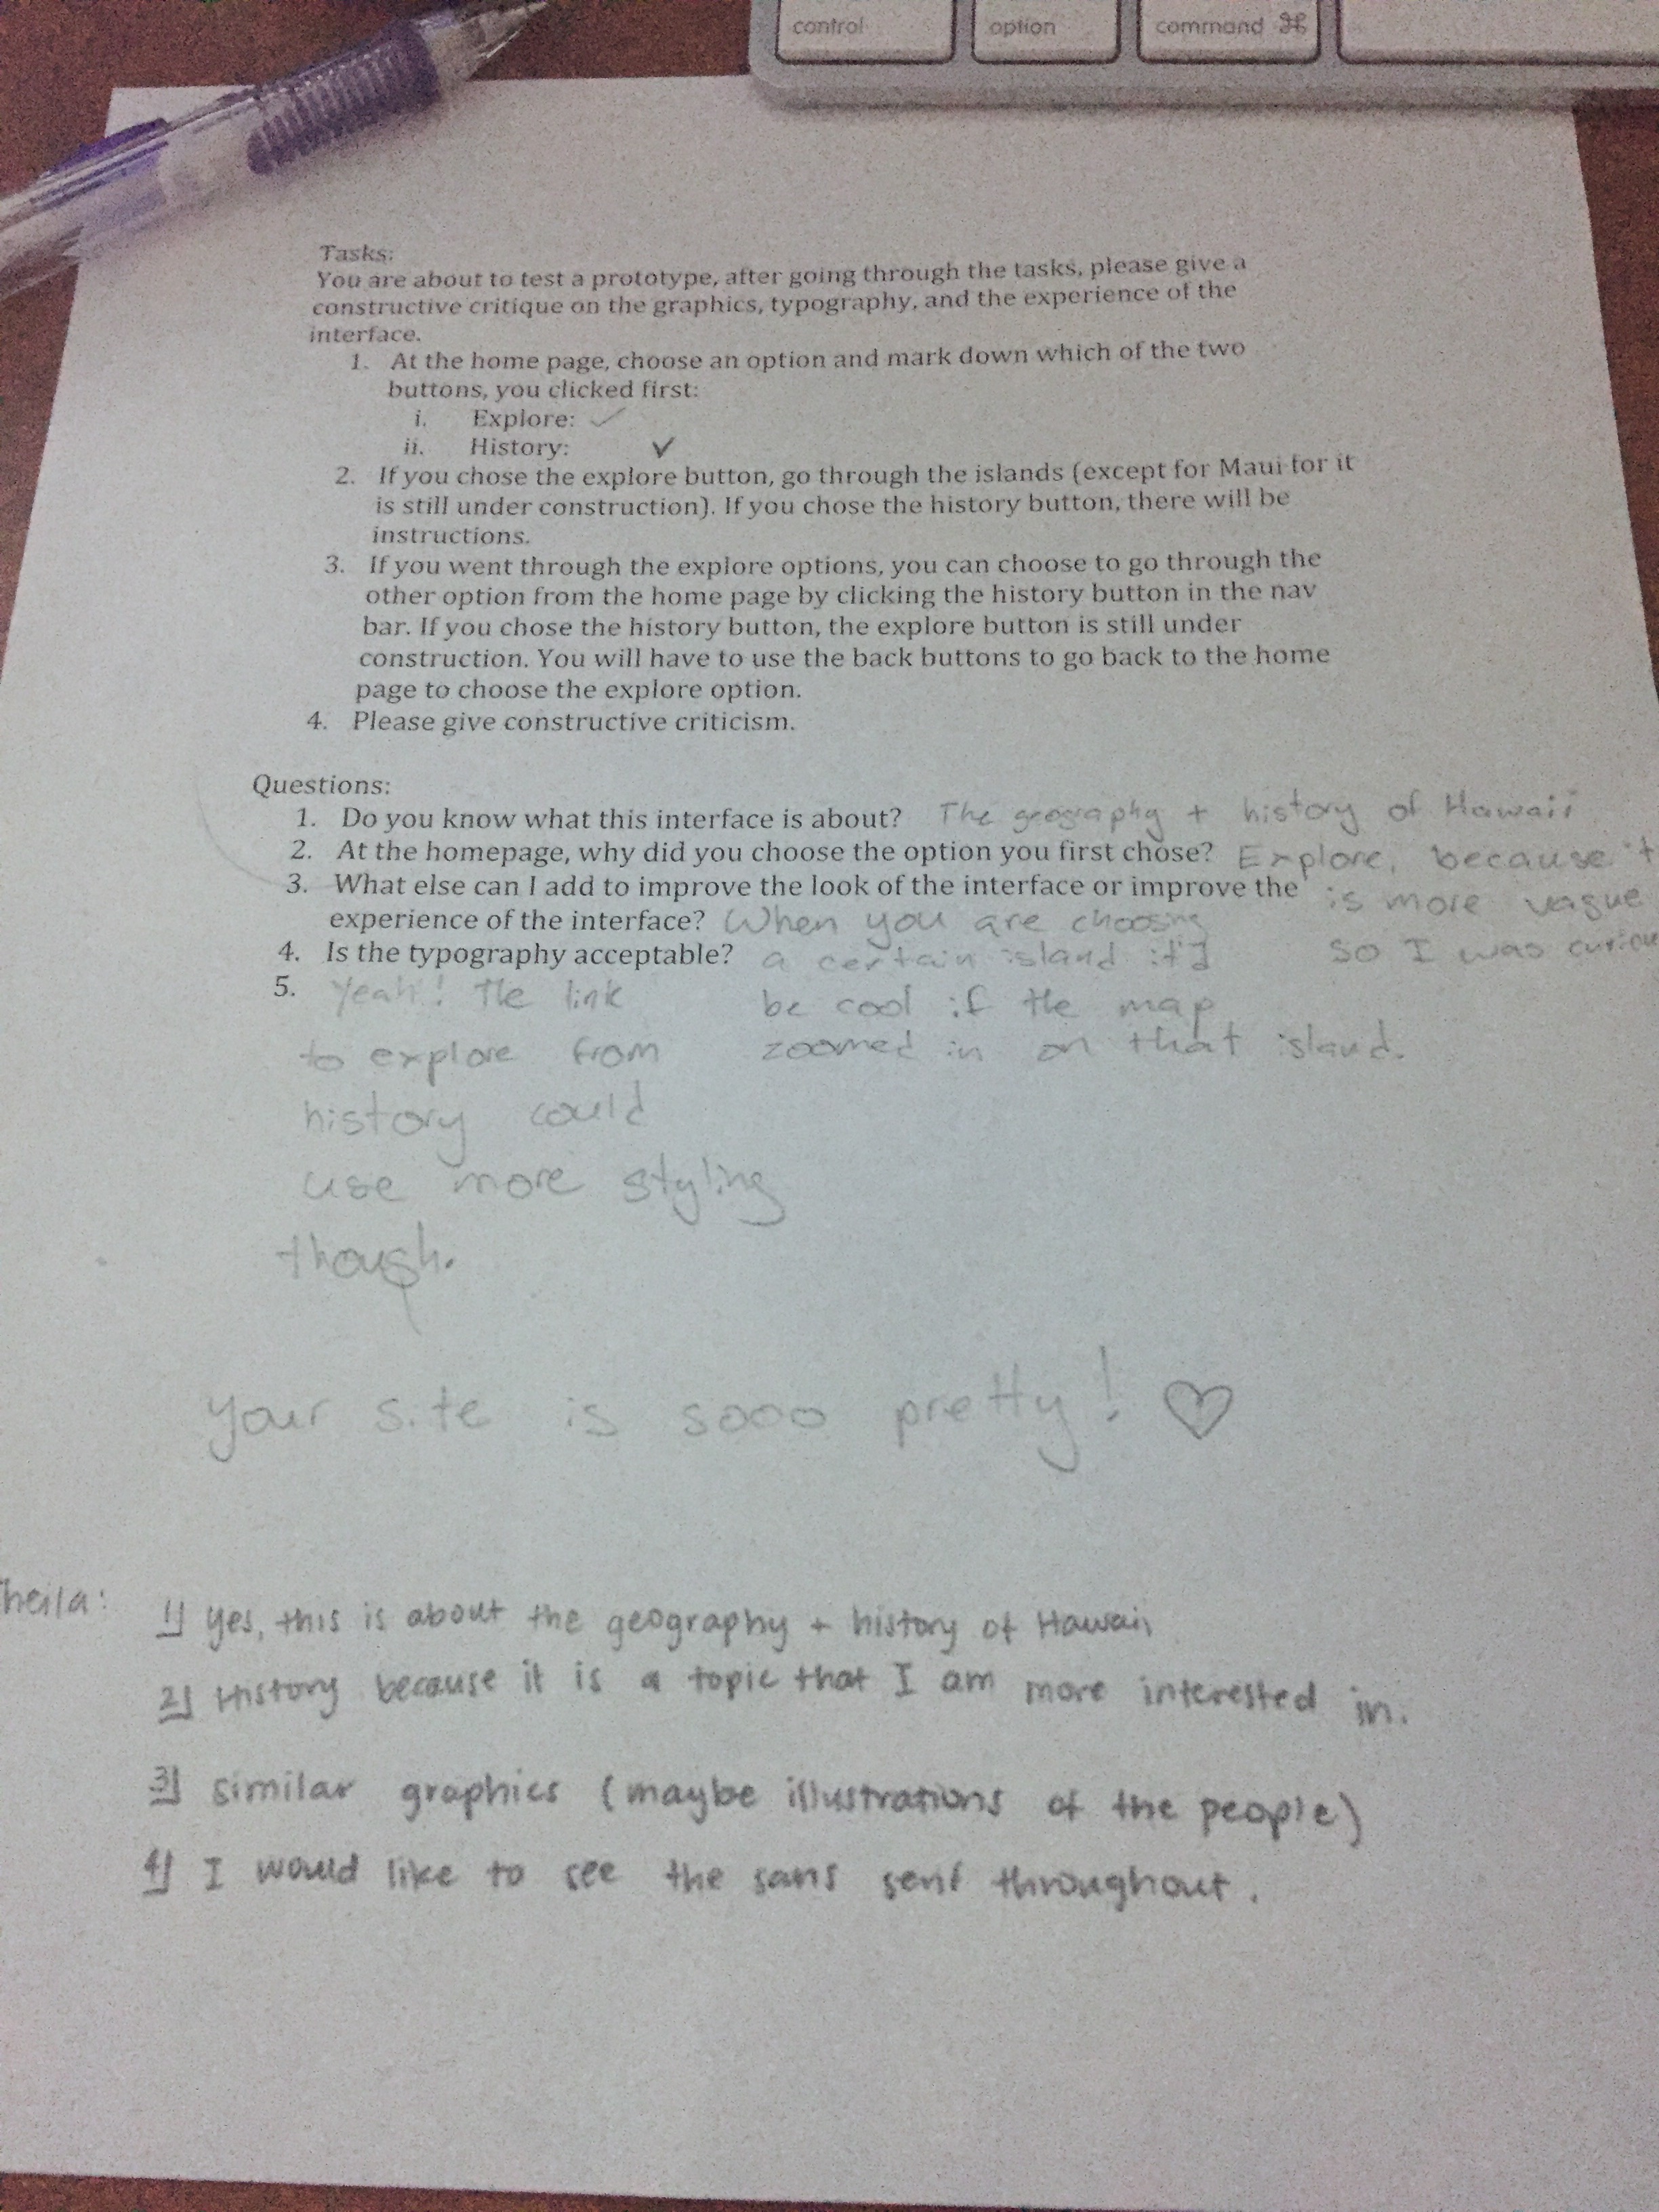 control option command ⌘
Tasks:
You are about to test a prototype, after going through the tasks, please give a
constructive critique on the graphics, typography, and the experience of the
interface.
1. At the home page, choose an option and mark down which of the two
buttons, you clicked first:
i. Explore: ✓
ii. History: ✓
2. If you chose the explore button, go through the islands (except for Maui for it
is still under construction). If you chose the history button, there will be
instructions.
3. If you went through the explore options, you can choose to go through the
other option from the home page by clicking the history button in the nav
bar. If you chose the history button, the explore button is still under
construction. You will have to use the back buttons to go back to the home
page to choose the explore option.
4. Please give constructive criticism.
Questions:
1. Do you know what this interface is about? The geography + history of Hawaii
2. At the homepage, why did you choose the option you first chose? Explore, because
is more vague
so I was
3. What else can I add to improve the look of the interface or improve the
experience of the interface? When you are choosing
a certain island it'd
be cool if the map
zoomed in on that island.
4. Is the typography acceptable?
5. Yeah! The link
to explore from
history could
use more styling
though.
your site is sooo pretty! ♡
heila: 1) yes, this is about the geography + history of Hawaii
2) History because it is a topic that I am more interested in.
3) similar graphics (maybe illustrations of the people)
4) I would like to see the sans serif throughout.